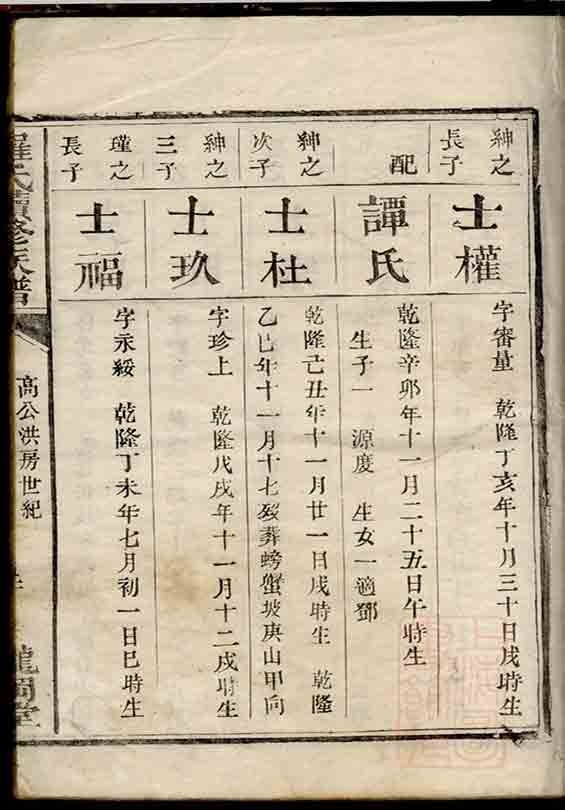 紳之長子
士權
字審量 乾隆丁亥年十月三十日戌時生
配
譚氏
乾隆辛卯年十一月二十五日午時生
生子一 源度 生女一適鄧
紳之次子
士杜
乾隆己丑年十一月廿一日戌時生 乾隆
乙巳年十一月十七歿葬螃蟹坡庚山甲向
紳之三子
士玖
字珍上 乾隆戊戌年十一月十二戌時生
瑾之長子
士福
字永綏 乾隆丁未年七月初一日巳時生
羅氏續修族譜
高公洪房世紀
龍岡堂